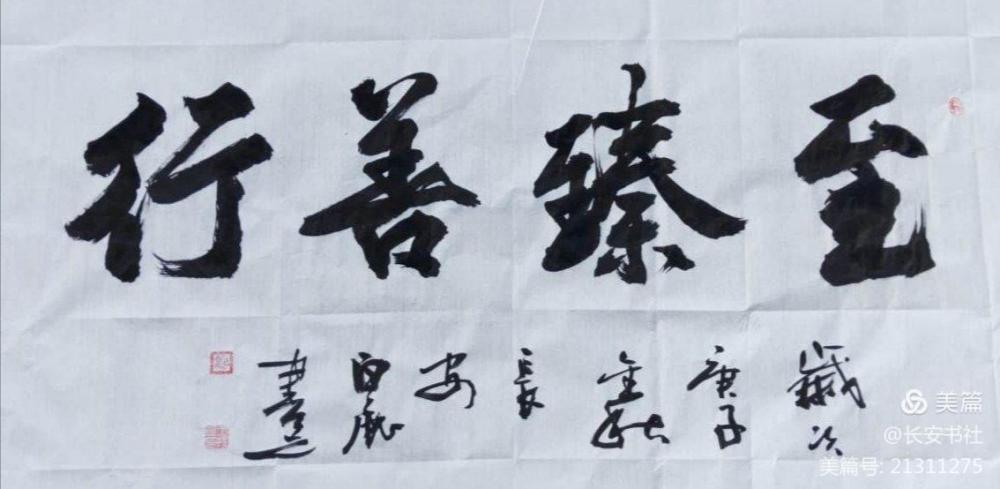 至臻善行
岁次庚子金秋长安白龙书
美篇
@长安书社
美篇号: 21311275